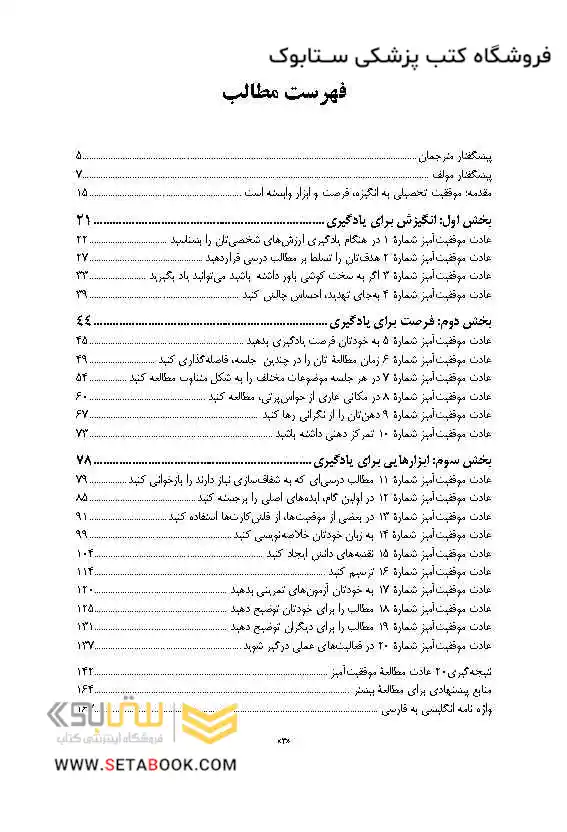 فروشگاه کتب پزشکی ستابوک
فهرست مطالب
پیشگفتار مترجمان ۵
پیشگفتار مولف ۷
مقدمه: موفقیت تحصیلی به انگیزه، فرصت و ابزار وابسته است ۱۵
بخش اول: انگیزش برای یادگیری ۲۱
عادت موفقیت‌آمیز شمارهٔ ۱ در هنگام یادگیری ارزش‌های شخصی‌تان را بشناسید ۲۲
عادت موفقیت‌آمیز شمارهٔ ۲ هدف‌تان را تسلط بر مطالب درسی قراردهید ۲۷
عادت موفقیت‌آمیز شمارهٔ ۳ اگر به سخت کوشی باور داشته باشید می‌توانید یاد بگیرید ۳۳
عادت موفقیت‌آمیز شمارهٔ ۴ به‌جای تهدید، احساس چالش کنید ۳۹
بخش دوم: فرصت برای یادگیری ۴۴
عادت موفقیت‌آمیز شمارهٔ ۵ به خودتان فرصت یادگیری بدهید ۴۵
عادت موفقیت‌آمیز شمارهٔ ۶ زمان مطالعهٔ تان را در چندین جلسه، فاصله‌گذاری کنید ۴۹
عادت موفقیت‌آمیز شمارهٔ ۷ در هر جلسه موضوعات مختلف را به شکل متناوب مطالعه کنید ۵۴
عادت موفقیت‌آمیز شمارهٔ ۸ در مکانی عاری از حواس‌پرتی، مطالعه کنید ۶۰
عادت موفقیت‌آمیز شمارهٔ ۹ ذهن‌تان را از نگرانی رها کنید ۶۷
عادت موفقیت‌آمیز شمارهٔ ۱۰ تمرکز ذهنی داشته باشید ۷۳
بخش سوم: ابزارهایی برای یادگیری ۷۸
عادت موفقیت‌آمیز شمارهٔ ۱۱ مطالب درسی‌ای که به شفاف‌سازی نیاز دارند را بازخوانی کنید ۷۹
عادت موفقیت‌آمیز شمارهٔ ۱۲ در اولین گام، ایده‌های اصلی را برجسته کنید ۸۵
عادت موفقیت‌آمیز شمارهٔ ۱۳ در بعضی از موقعیت‌ها، از فلش‌کارت‌ها استفاده کنید ۹۱
عادت موفقیت‌آمیز شمارهٔ ۱۴ به زبان خودتان خلاصه‌نویسی کنید ۹۹
عادت موفقیت‌آمیز شمارهٔ ۱۵ نقشه‌های دانش ایجاد کنید ۱۰۴
عادت موفقیت‌آمیز شمارهٔ ۱۶ ترسیم کنید ۱۱۴
عادت موفقیت‌آمیز شمارهٔ ۱۷ به خودتان آزمون‌های تمرینی بدهید ۱۲۰
عادت موفقیت‌آمیز شمارهٔ ۱۸ مطالب را برای خودتان توضیح دهید ۱۲۵
عادت موفقیت‌آمیز شمارهٔ ۱۹ مطالب را برای دیگران توضیح دهید ۱۳۱
عادت موفقیت‌آمیز شمارهٔ ۲۰ در فعالیت‌های عملی درگیر شوید ۱۳۷
نتیجه‌گیری۲۰ عادت مطالعهٔ موفقیت‌آمیز ۱۴۲
منابع پیشنهادی برای مطالعهٔ بیشتر ۱۶۴
واژه نامه انگلیسی به فارسی
ستابوک
فروشگاه اینترنتی کتاب
«۳»
WWW.SETABOOK.COM